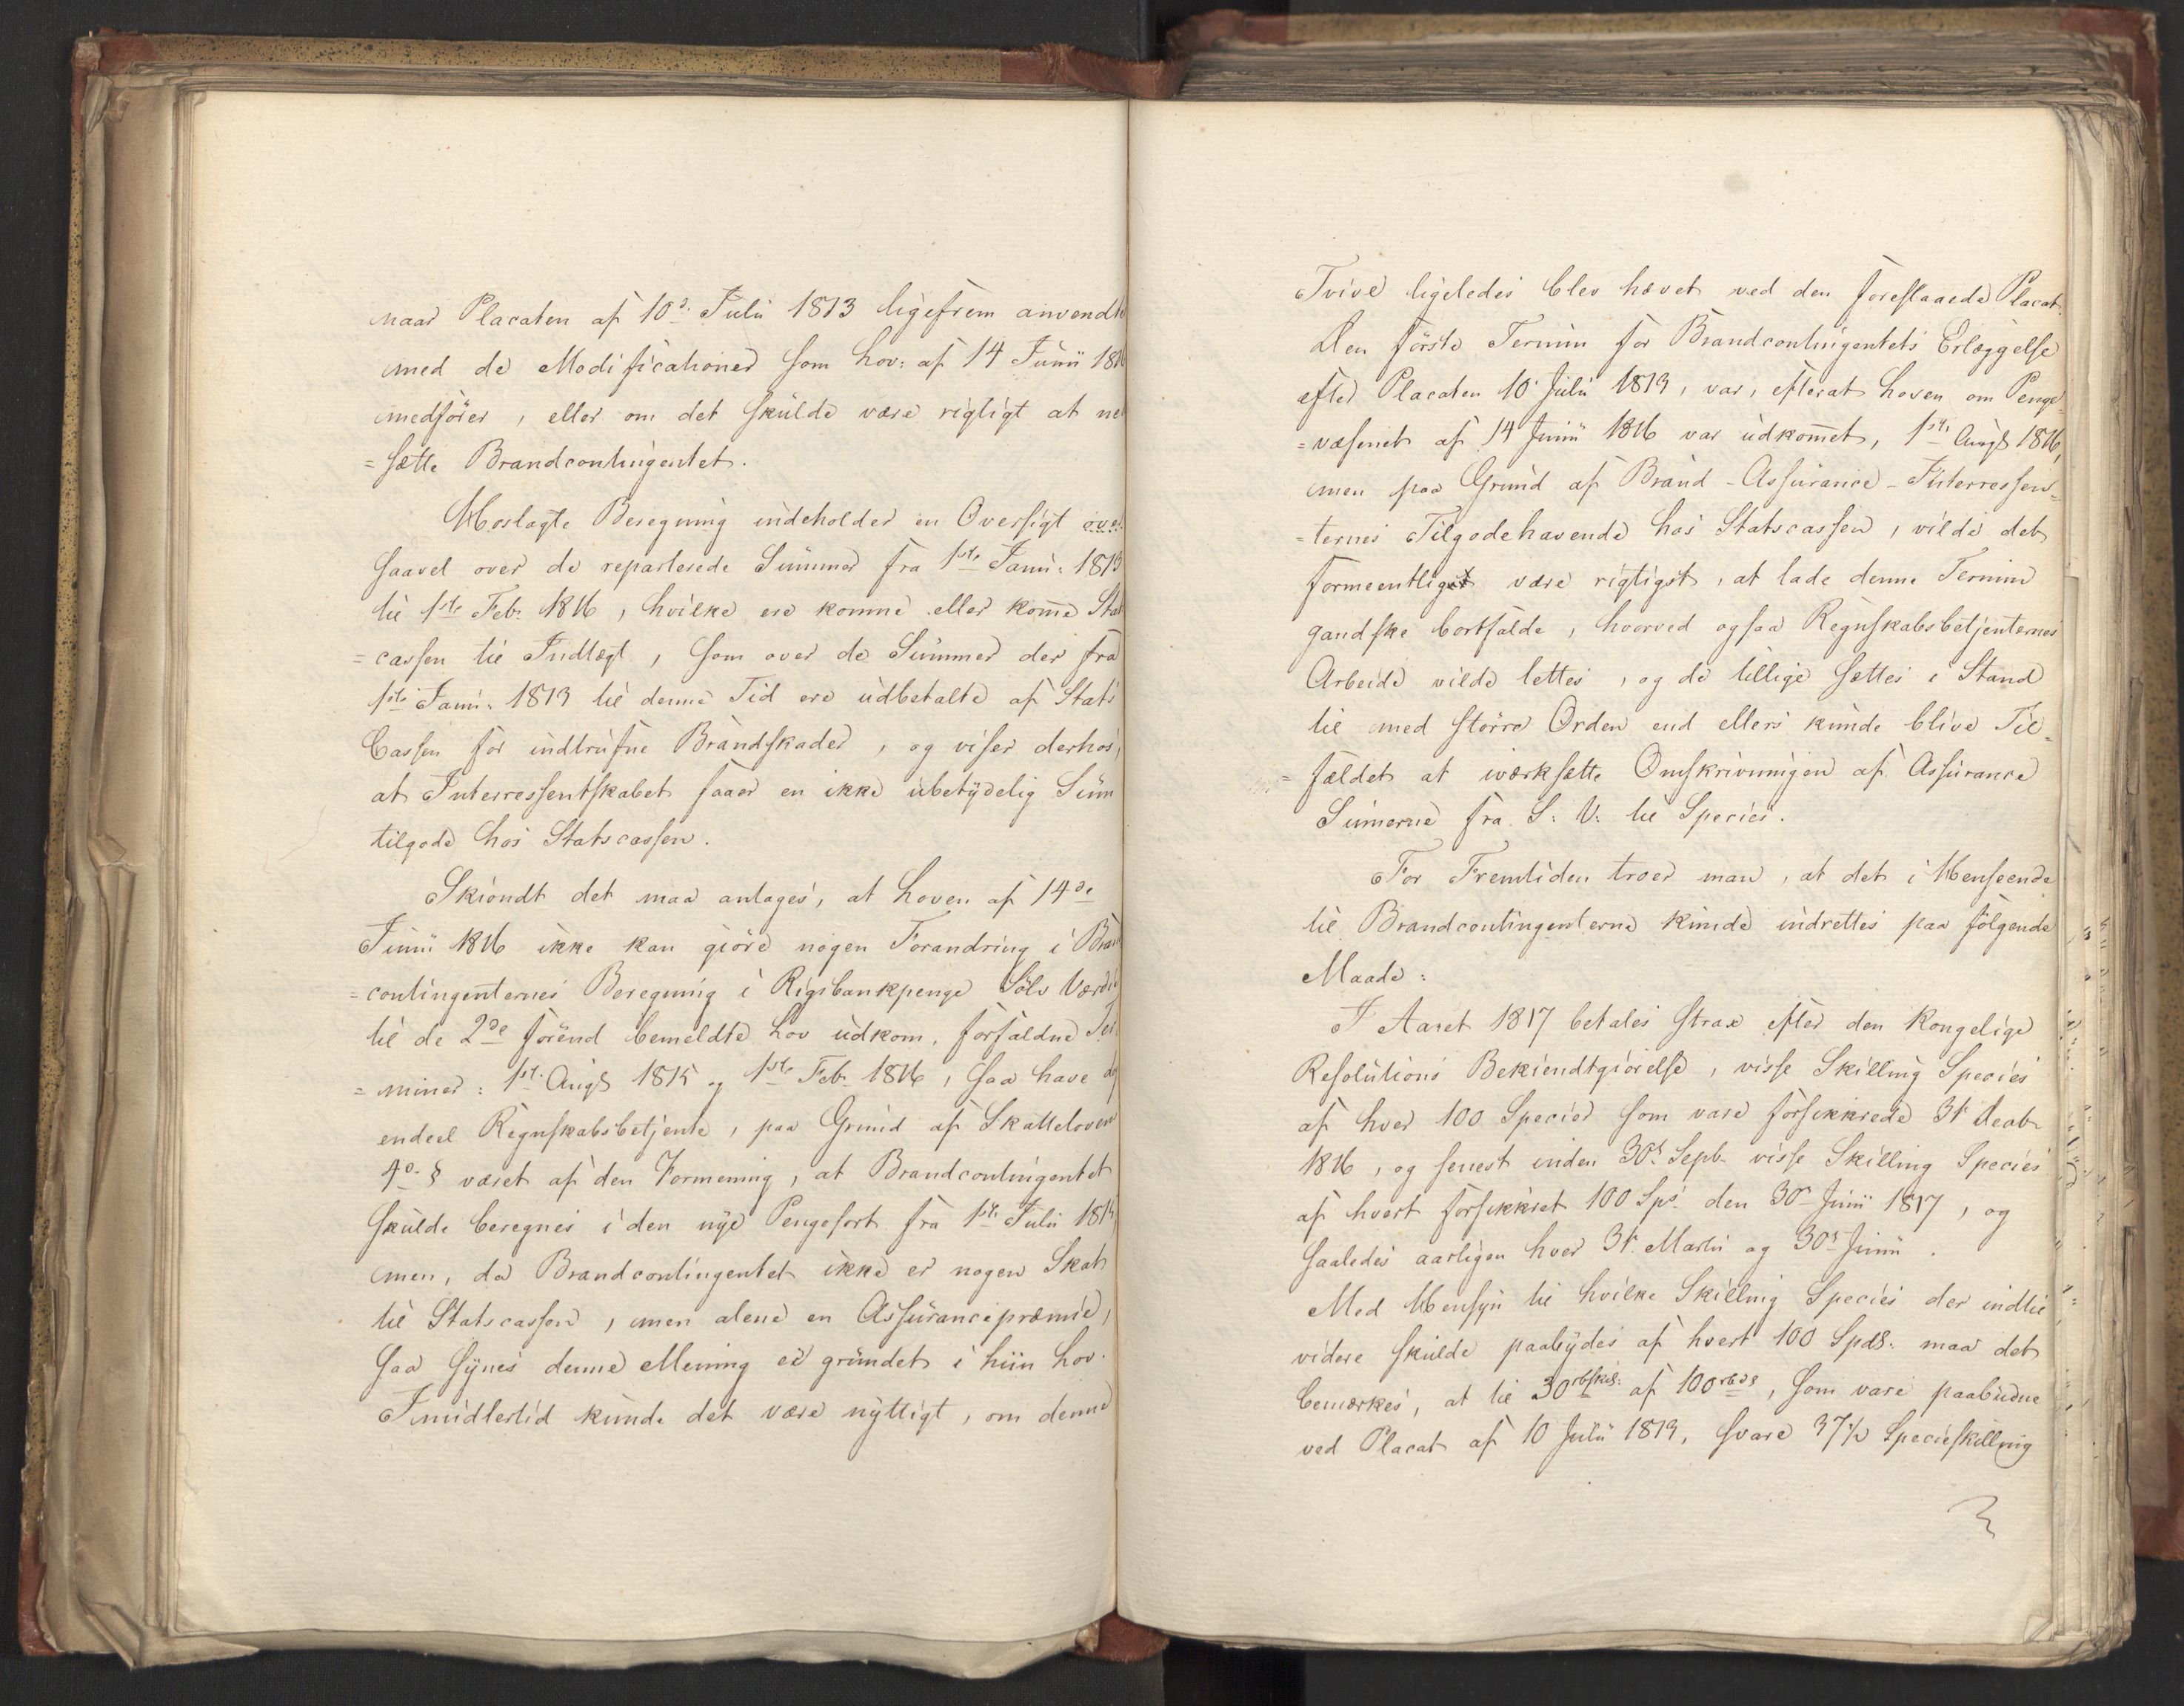 naar Placaten af 10d. Julii 1813 ligefrem anvendte
med de Modificationer som Lov: af 14 Junii 1816
medfører, eller om det skulde være rigtigt at ned
=sætte Brandcontingentet.
Hoslagte Beregning indeholder en Oversigt over
saavel over de reparterede Summer fra 1ste Janu: 1813
til 1ste Feb: 1816, hvilke ere komne eller komme Stats
=cassen til Indtægt, som over de Summer der fra
1ste Janu: 1813 til denne Tid ere udbetalte af Stats
Cassen for indtrufne Brandskader, og viser derhos,
at Interressentskabet faaer en ikke ubetydelig Sum
tilgode hos Statscassen.
Skiøndt det maa antages, at Loven af 14de
Junii 1816 ikke kan giøre nogen Forandring i Brand
=contingenternes Beregning i Rigsbankpenge Sølv Værdie
til de 2de førend bemeldte Lov udkom, forfaldne Ter
=miner: 1st. Augs 1815 og 1ste Feb. 1816, saa have dog
endeel Regnskabsbetjente, paa Grund af Skatteloven
4d. § været af den Formening, at Brandcontingentet
skulde beregnes i den nye Pengesort fra 1ste Julii 1815,
men, da Brandcontingentet ikke er nogen Skat
til Statscassen, men alene en Assurancepræmie,
saa synes denne Mening ei grundet i hiin Lov.
Imidlertid kunde det være nyttigt, om denne
Tvivl ligeledes blev hævet ved den foreslaaede Placat.
Den første Termin for Brandcontingentets Erlæggelse
efter Placaten 10 Julii 1813, var, efterat Loven om Penge
=væsenet af 14 Junii 1816 var udkommet, 1ste Augs 1816,
men paa Grund af Brand-Assurance-Interressen=
=ternes Tilgodehavende hos Statscassen, vilde det
formeentligst være rigtigst, at lade denne Termin
gandske bortfalde, hvorved ogsaa Regnskabsbetjenternes
Arbeide vilde lettes, og de tillige sættes i Stand
til med større Orden end ellers kunde blive Til=
=fældet at iværksætte Omskrivningen af Assurance
Summerne fra S: V: til Species.
For Fremtiden troer man, at det i Henseende
til Brandcontingenterne kunde indrettes paa følgende
Maade:
I Aaret 1817 betales strax efter den Kongelige
Resolutions Bekiendtgiørelse, visse Skilling Species
af hver 100 Specier som vare forsikkrede 31 Decbr
1816, og senest inden 30t Septb. visse Skilling Species
af hvert forsikkret 100 Sps. den 30t Junii 1817, og
saaledes aarligen hver 31t Martii og 30t Junii.
Med Hensyn til hvilke Skilling Species der indtil
videre skulde paabydes af hvert 100 Spds. maa det
bemærkes, at til 30 rbskil: af 100 rbds, som vare paabudne
ved Placat af 10 Julii 1813, svare 37½ Specieskilling